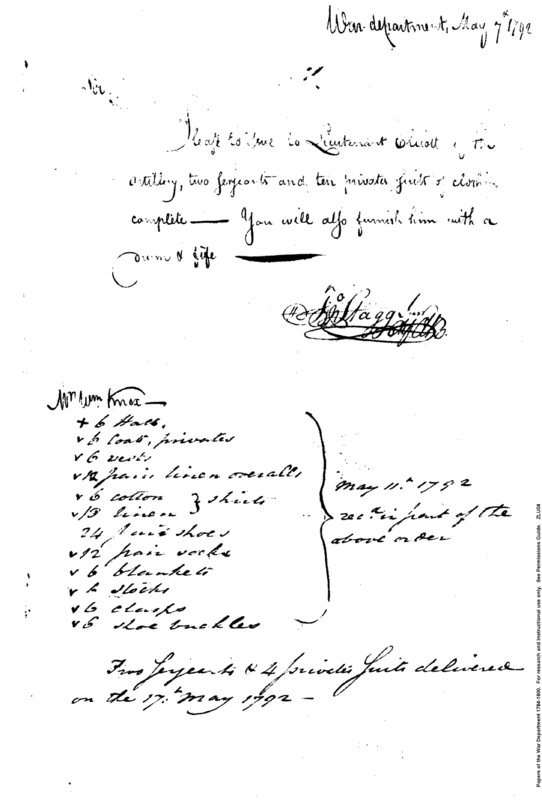 War department, May 7th 1792
Sir,
Please to issue to Lieutenant of the
artillery, two Serjeants and ten privates suits of clothing
complete — You will also furnish him with a
drum & fife
Jno Stagg Junr
Mr Wm Knox —
+ 6 Hats,
v 6 Coats, privates
v 6 vests
v 12 pair linen overalls
v 6 cotton } shirts
v linen
24 pair shoes
v 12 pair socks
v 6 blankets
v 6 stocks
v 6 clasps
v 6 shoe buckles
May 11th 1792
recd in part of the
above order
Two Serjeants & 4 privates suits delivered
on the 17th May 1792 —
Papers of the War Department 1784-1800. For research and instructional use only. See Permissions Guide. ZLU04